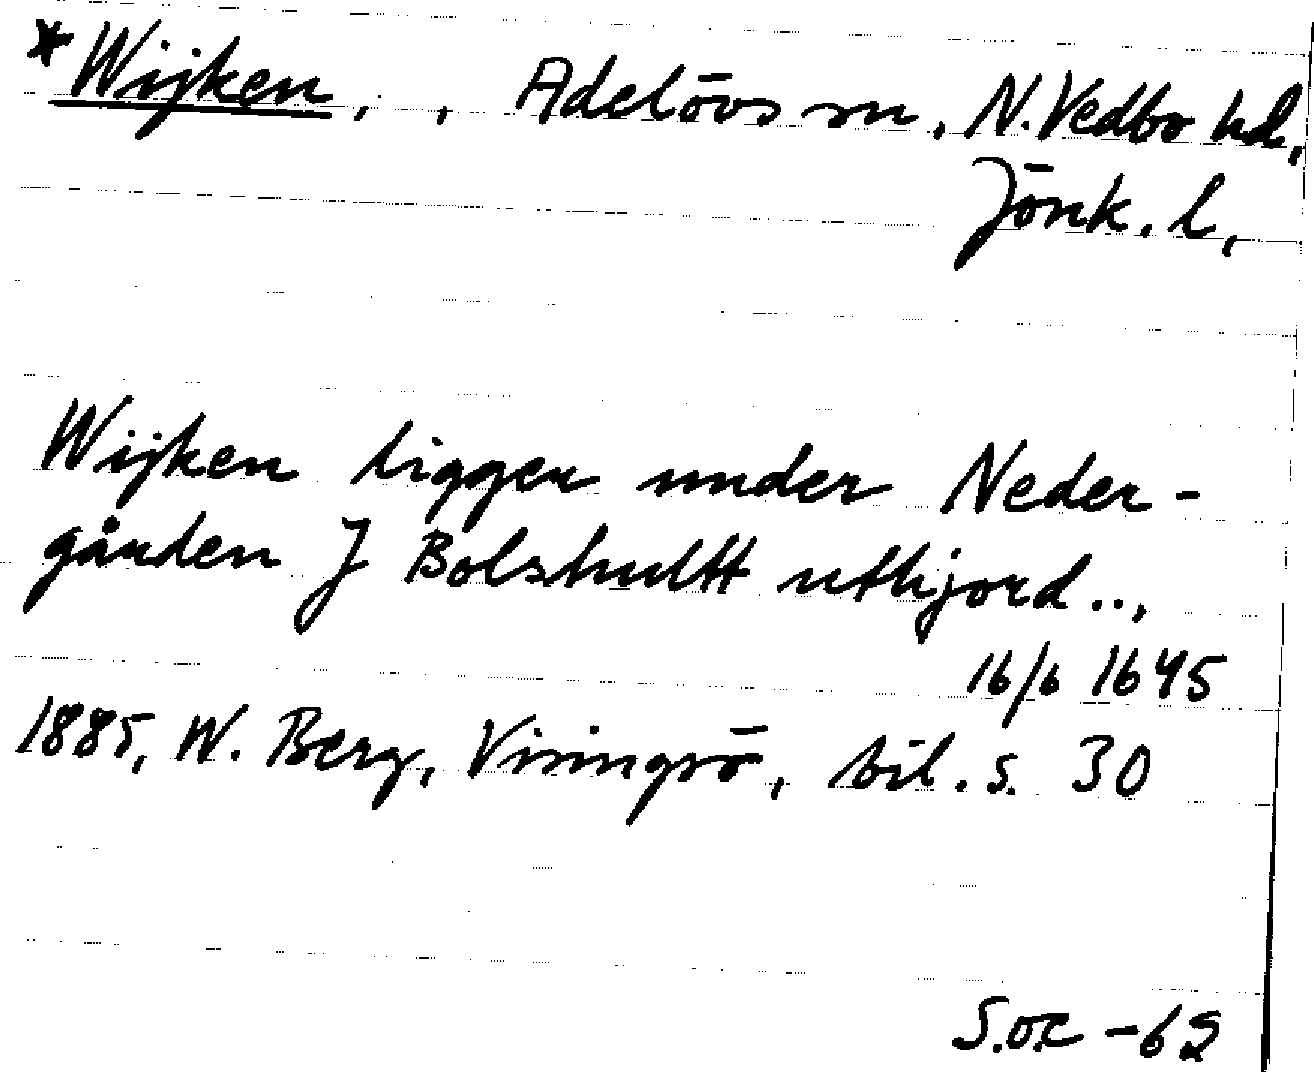 *Wijken, , Adelövs sn, N. Vedbo hd,
Jönk. l,
Wijken ligger under Neder-
gården J Bolshultt uthjord..,
16/6 1645
1885, W. Berg, Visingsö, bil. s. 30
S.O.E -62